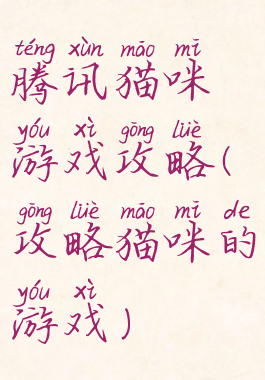 téng xùn māo mī
腾讯猫咪
yóu xì gōng lüè
游戏攻略(
gōng lüè māo mī de
攻略猫咪的
yóu xì
游戏)